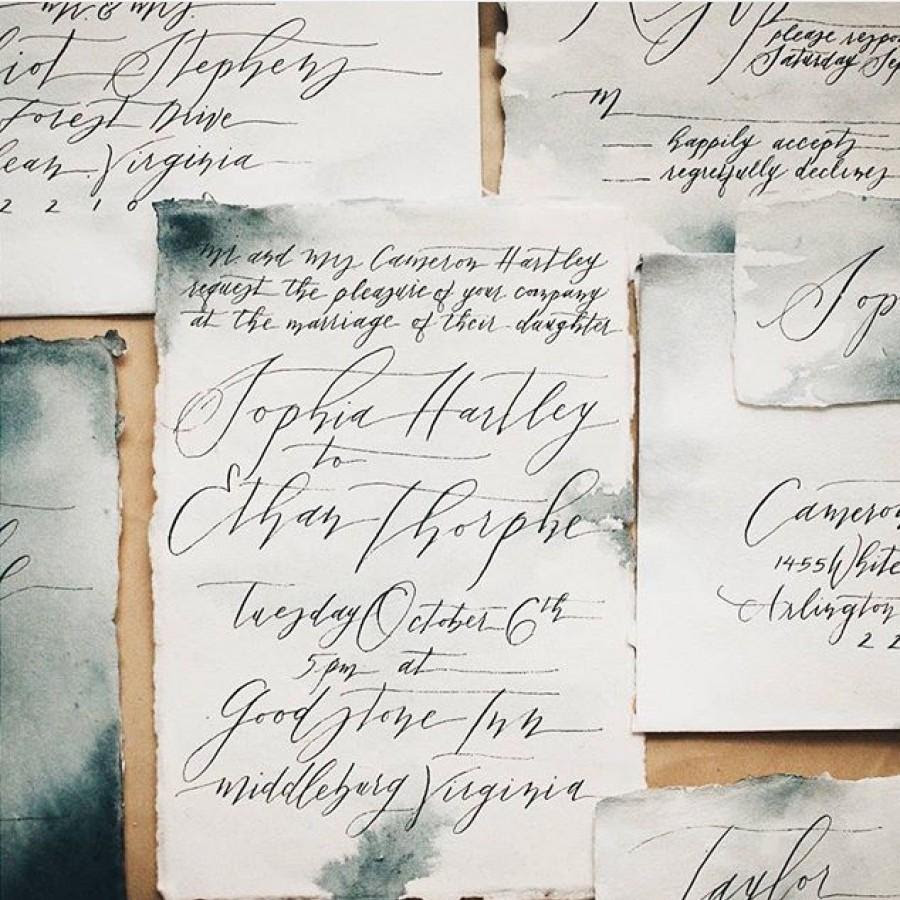 mr. & mrs.
iot Stephens
Forest Drive
lean, Virginia
2 2 1 0
RSVP
please respo
Saturday Sep
M
happily accepts
regretfully declines
Mr and Mrs Cameron Hartley
request the pleasure of your company
at the marriage of their daughter
Sophia Hartley
to
Ethan Thorphe
Tuesday October 6th
5pm at
Goodstone Inn
middleburg Virginia
Sop
Cameron
1455 White
Arlington
2 2
Taylor